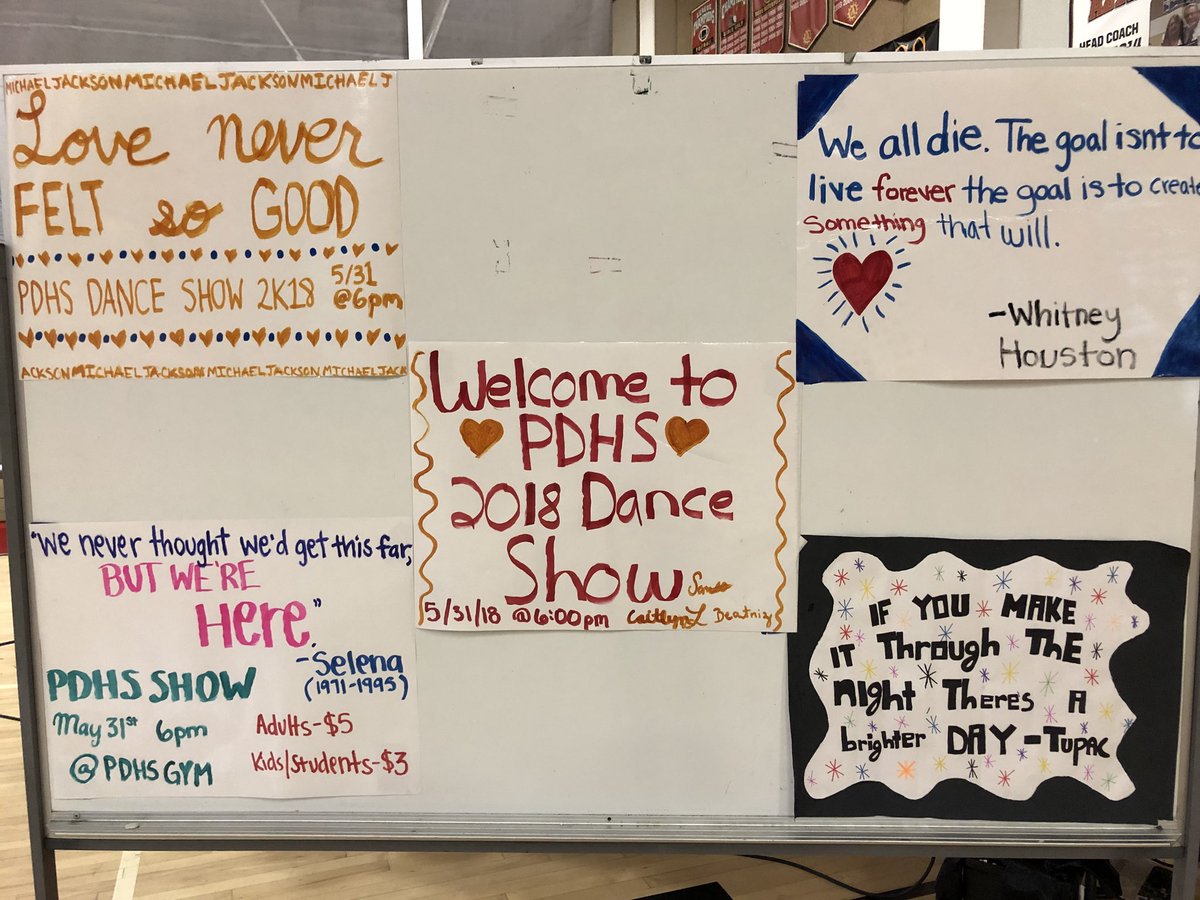 MICHAELJACKSONMICHAELJACKSONMICHAELJ
Love never
FELT so GOOD
PDHS DANCE SHOW 2K18 5/31 @6pm
ACKSONMICHAELJACKSONMICHAELJACKSONMICHAELJACK
We all die. The goal isnt to
live forever the goal is to create
something that will.
-Whitney
Houston
Welcome to
PDHS
2018 Dance
Show
5/31/18 @6:00pm
"We never thought we'd get this far,
BUT WE'RE
Here."
-Selena
(1971-1995)
PDHS SHOW
May 31st 6pm
@PDHSGYM
Adults-$5
Kids/Students-$3
IF YOU MAKE
IT Through ThE
night, There's A
brighter DAY -Tupac
HEAD COACH